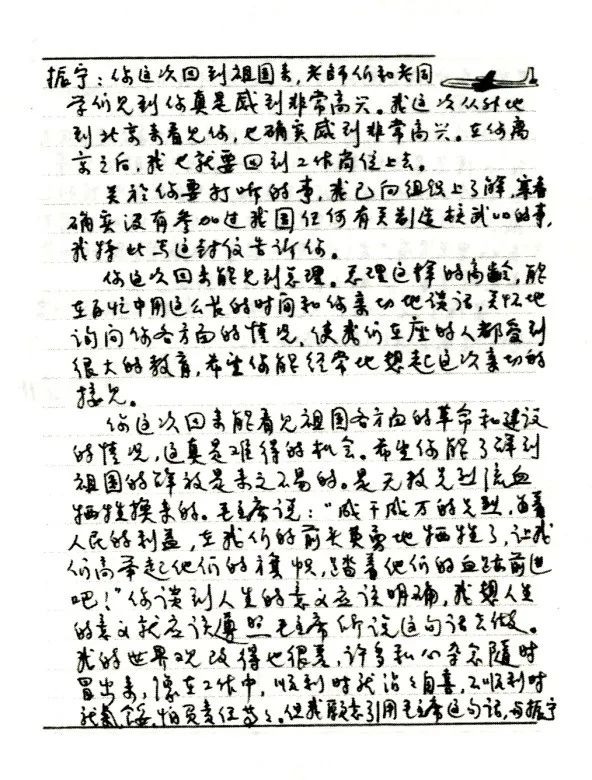 振宁：你这次回到祖国来，老師们和老同
学们见到你真是感到非常高兴。我这次从外地
到北京来看见你，也确实感到非常高兴。在你离
京之后，我也就要回到工作岗位上去。
关於你要打听的事，我已向组织上了解，寒春
确实没有参加过我国任何有关制造核武器的事，
我特此写这封信告诉你。
你这次回来能见到总理。总理这样的高龄，能
在百忙中用这么长的时间和你亲切地谈话，关怀地
询问你各方面的情况，使我们在座的人都受到
很大的教育，希望你能经常地想起这次亲切的
接见。
你这次回来能看见祖国各方面的革命和建设
的情况，这真是难得的机会。希望你能了解到
祖国的解放是来之不易的。是无数先烈流血
牺牲换来的。毛主席说："成千成万的先烈，为着
人民的利益，在我们的前头英勇地牺牲了，让我
们高举起他们的旗帜，踏着他们的血迹前进
吧！"你谈到人生的意义应该明确，我想人生
的意义就应该遵照毛主席所说这句话去做。
我的世界观改得也很差，许多私心杂念随时
冒出来，像在工作中，顺利时就沾沾自喜，不顺利时
就气馁，怕负责任等等。但我愿意引用毛主席这句话，与振宁